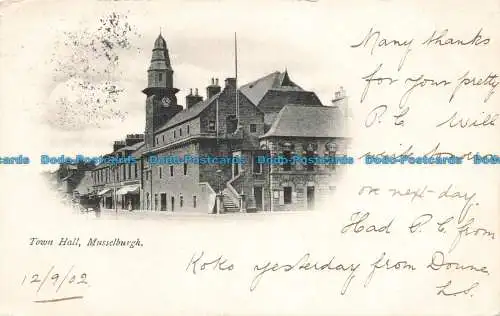 Many thanks
for your pretty
P.C. Will
write tomorrow
or next day.
Had P.C. from
Koko yesterday from Doune
L.S.
Town Hall, Musselburgh.
12/9/02
Dodo-Postcards Dodo-Postcards Dodo-Postcards Dodo-Postcards Dodo-Postcards